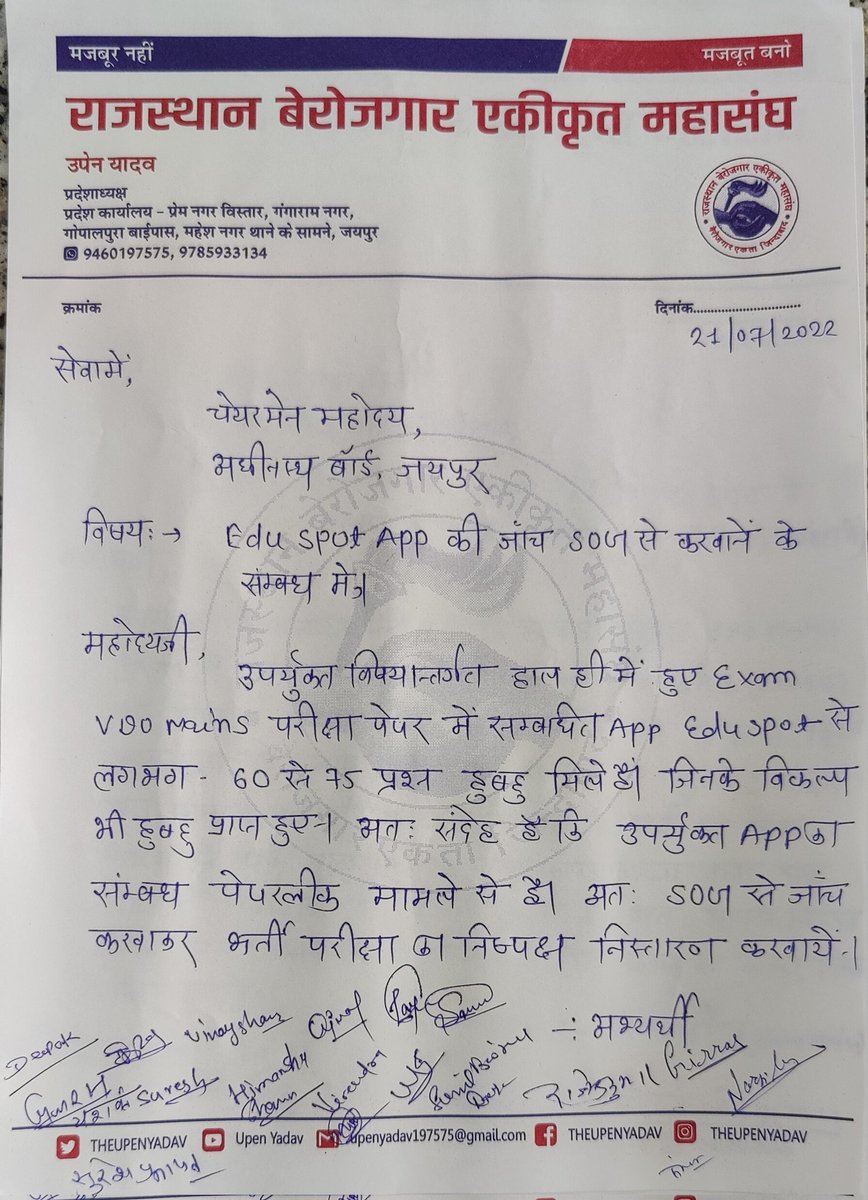 मजबूर नहीं
मजबूत बनो
राजस्थान बेरोजगार एकीकृत महासंघ
उपेन यादव
प्रदेशाध्यक्ष
प्रदेश कार्यालय - प्रेम नगर विस्तार, गंगाराम नगर,
गोपालपुरा बाईपास, महेश नगर थाने के सामने, जयपुर
9460197575, 9785933134
राजस्थान बेरोजगार एकीकृत महासंघ
बेरोजगार एकता जिन्दाबाद
क्रमांक
दिनांक..............................
21/07/2022
सेवामें,
चेयरमेन महोदय,
बॉर्ड, जयपुर
विषय:→ Edu spot App की जाँच SOG से करवानें के
संम्बध मे।
महोदयजी,
उपर्युक्त विषयान्तर्गत हाल ही में हुए Exam
VDO Mains परीक्षा पेपर में सम्बधित App Edu spot से
लगभग - 60 से 75 प्रश्न हुबहु मिले हैं। जिनके विकल्प
भी हुबहु प्राप्त हुए। अतः संदेह है कि उपर्युक्त APP का
संम्बध पेपरलीक मामले से है। अतः SOG से जाँच
करवाकर भर्ती परीक्षा का निष्पक्ष निस्तारण करवायें।
:- अभ्यर्थी
Deepak
Vinay
Suresh
Himanshu
Virendra
THEUPENYADAV Upen Yadav upenyadav197575@gmail.com THEUPENYADAV THEUPENYADAV
सुरेश